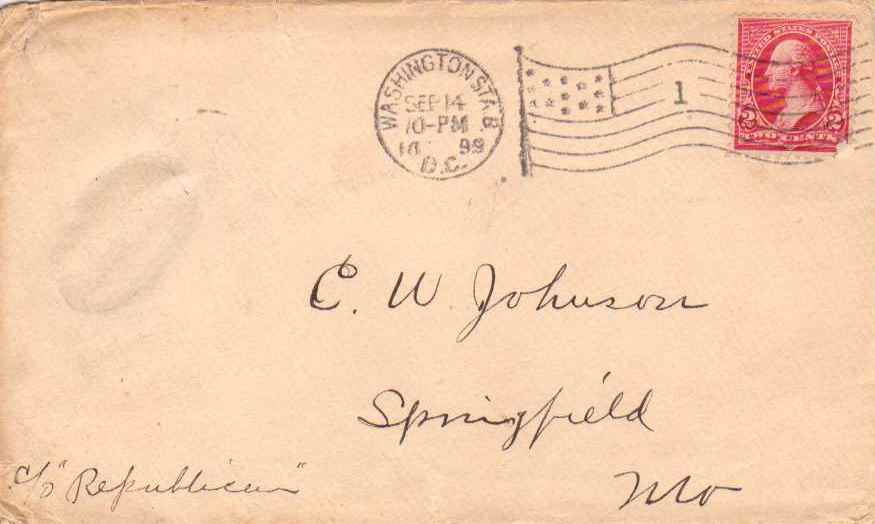 WASHINGTON STA.B.
SEP 14
10-PM
99
D.C.
1
UNITED STATES POSTAGE
2 2
TWO CENTS
C. W. Johnson
Springfield
Mo
c/o "Republican"